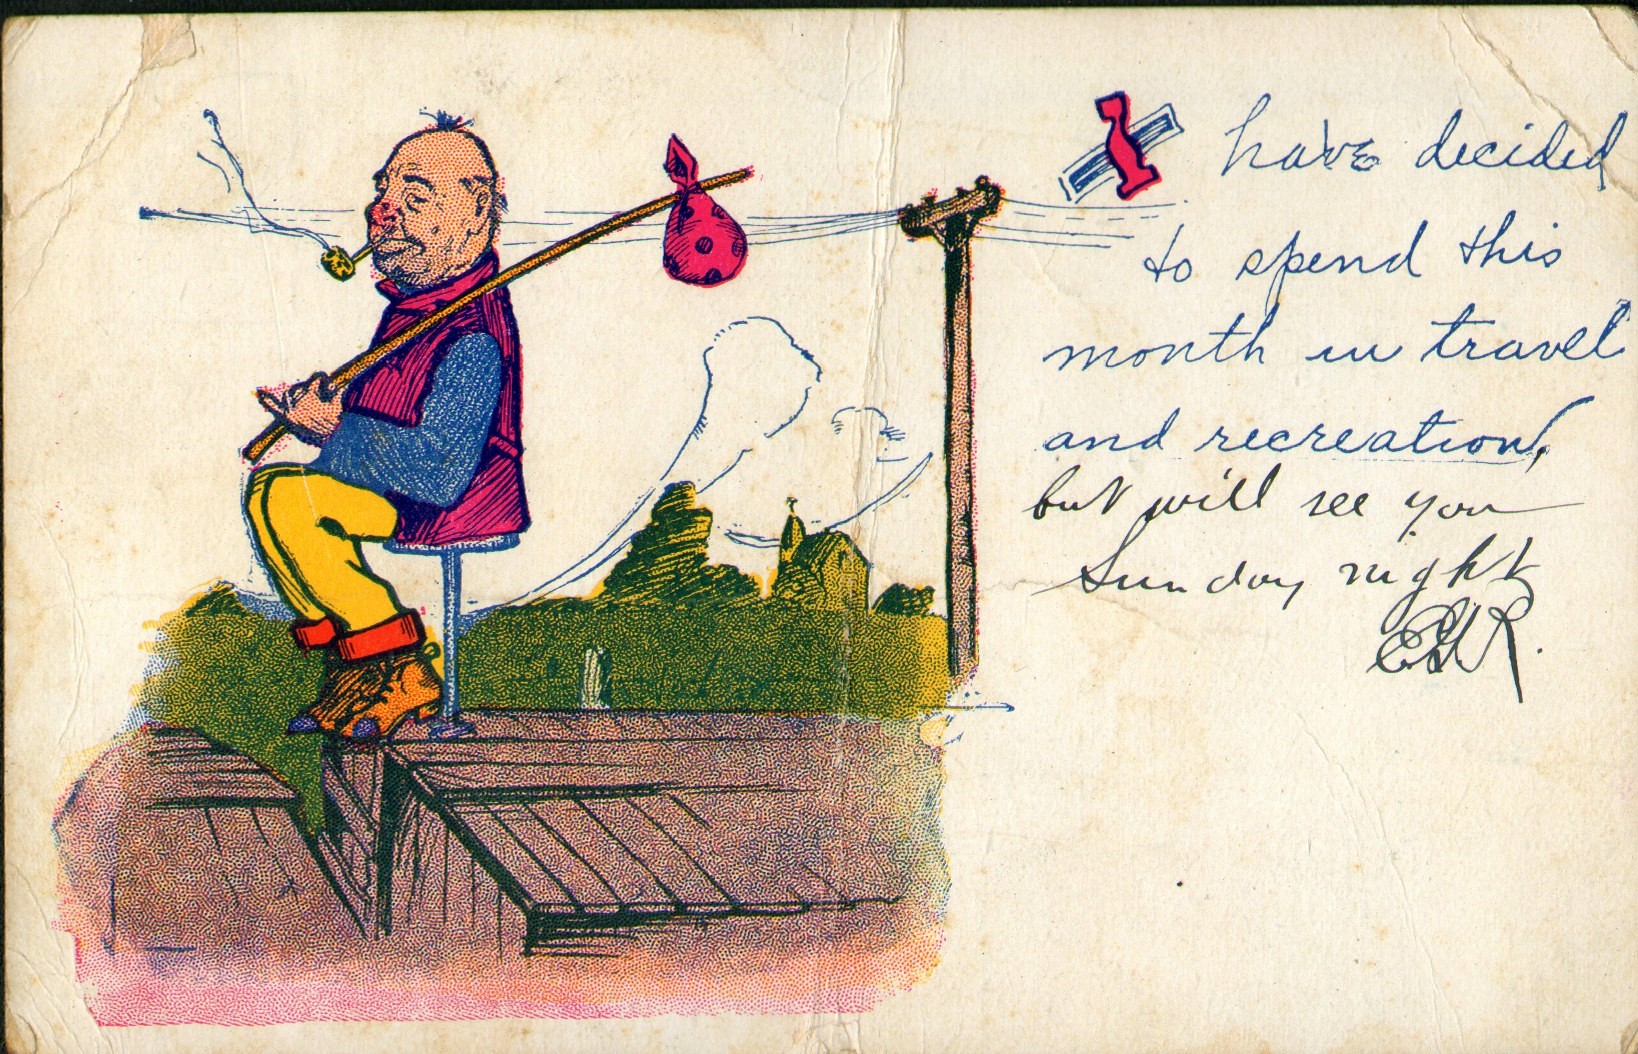 I have decided
to spend this
month in travel
and recreation,
but will see you
Sunday night